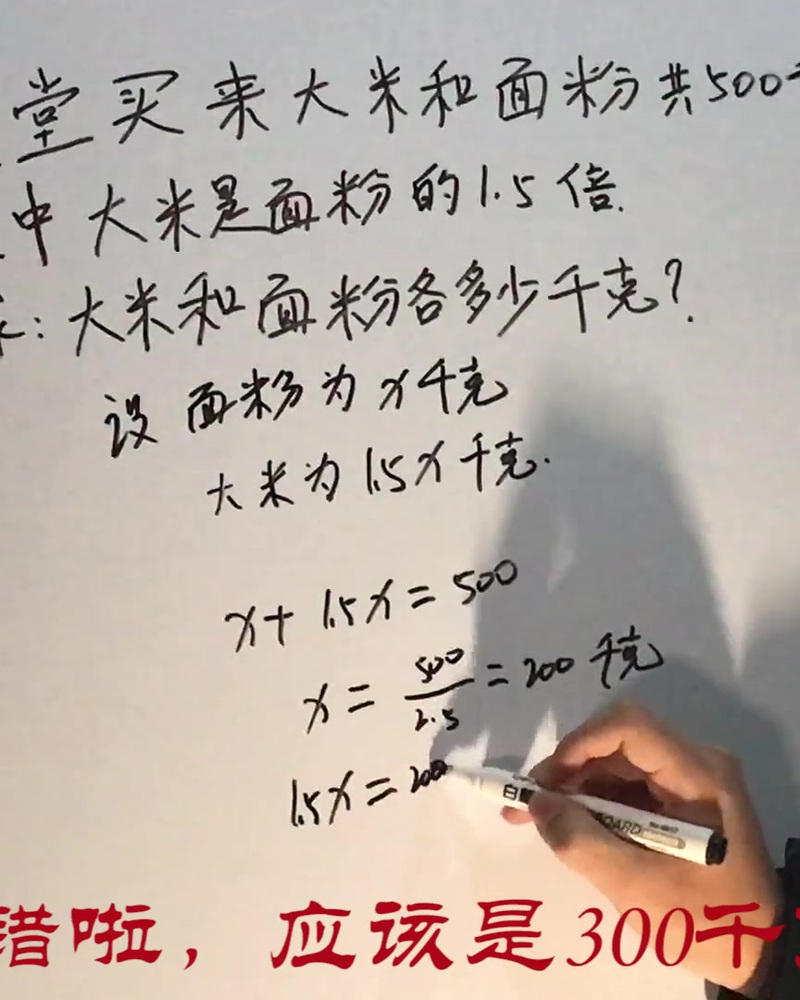 堂买来大米和面粉共500千
中大米是面粉的1.5倍.
: 大米和面粉各多少千克?
设面粉为x千克
大米为1.5x千克.
x+1.5x=500
x=500/2.5=200千克
1.5x=200
错啦，应该是300千